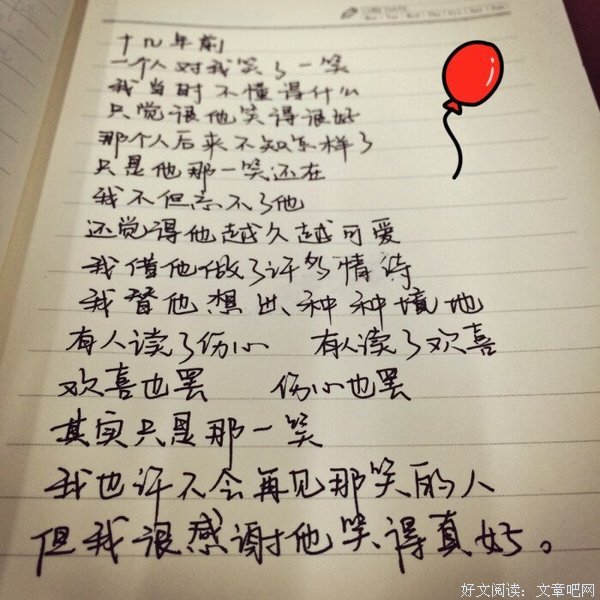 十几年前
一个人对我笑了一笑
我当时不懂得什么
只觉很他笑得很好
那个人后来不知怎样了
只是他那一笑还在
我不但忘不了他
还觉得他越久越可爱
我借他做了许多情诗
我替他想出种种境地
有人读了伤心 有人读了欢喜
欢喜也罢 伤心也罢
其实只是那一笑
我也许不会再见那笑的人
但我很感谢他笑得真好。
好文阅读：文章吧网